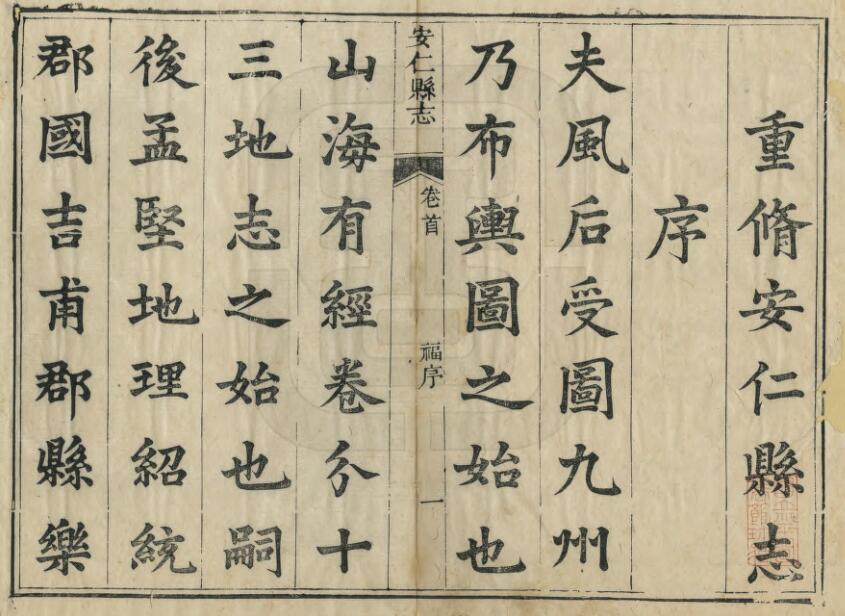 重脩安仁縣志
序
夫風后受圖九州
乃布輿圖之始也
安仁縣志 卷首 福序 一
山海有經卷分十
三地志之始也嗣
後孟堅地理紹統
郡國吉甫郡縣樂